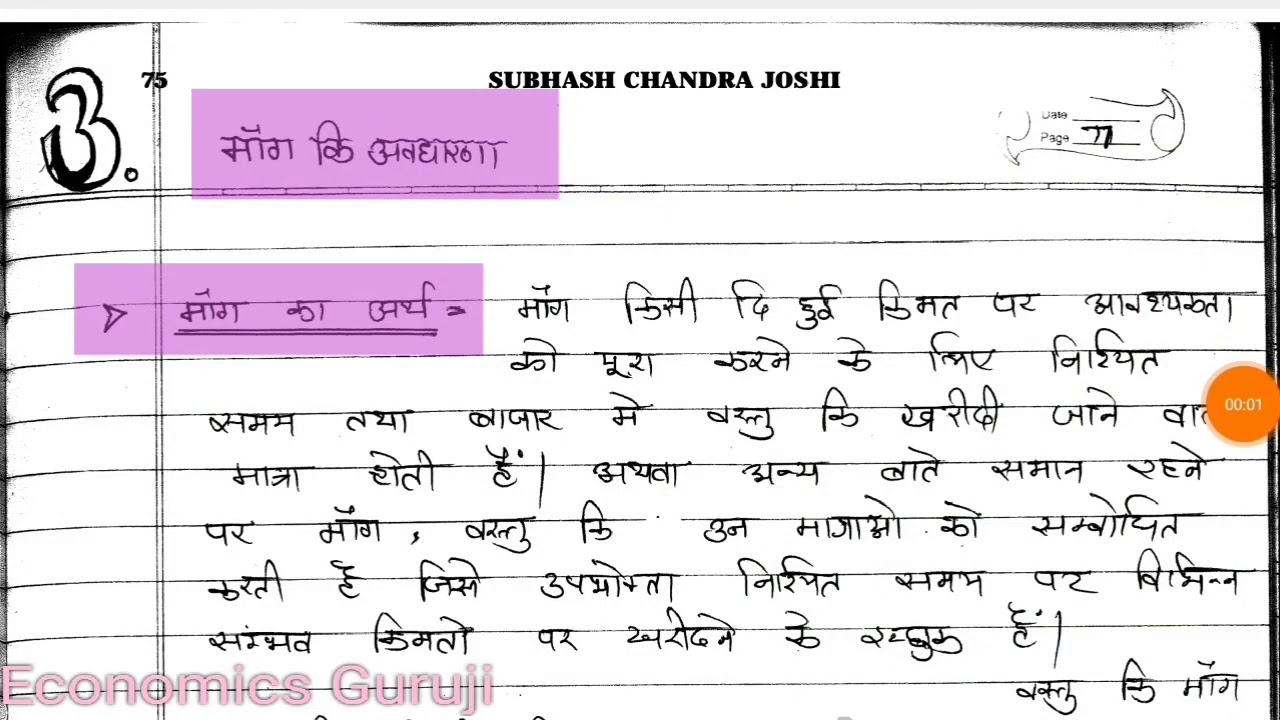 3.
75
SUBHASH CHANDRA JOSHI
Date
Page 77
माँग कि अवधारणा
माँग का अर्थ = माँग किसी दि हुई किमत पर आवश्यकता
को पूरा करने के लिए निश्यित
समय तथा बाजार मे वस्तु कि खरीदी जाने
00:01
मात्रा होती हैं| अथवा अन्य बाते समान रहने
पर माँग, वस्तु कि उन मागाओ को सम्बोधित
करती है जिसे उपभोक्ता निश्यित समय पर विभिन्न
संम्भव किमतो पर खरीदने के इच्छुक हैं|
वस्तु कि माँग
Economics Guruji